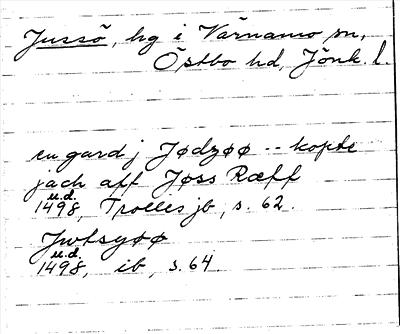 Jussö, hg i Värnamo sn,
Östbo hd, Jönk. l.
en gard j Jødzøø -- køpte
jach aff Jøss Ræff
u.d.
1498, Trolles jb, s. 62.
Jwtsyøø
u.d.
1498, ib, s. 64.